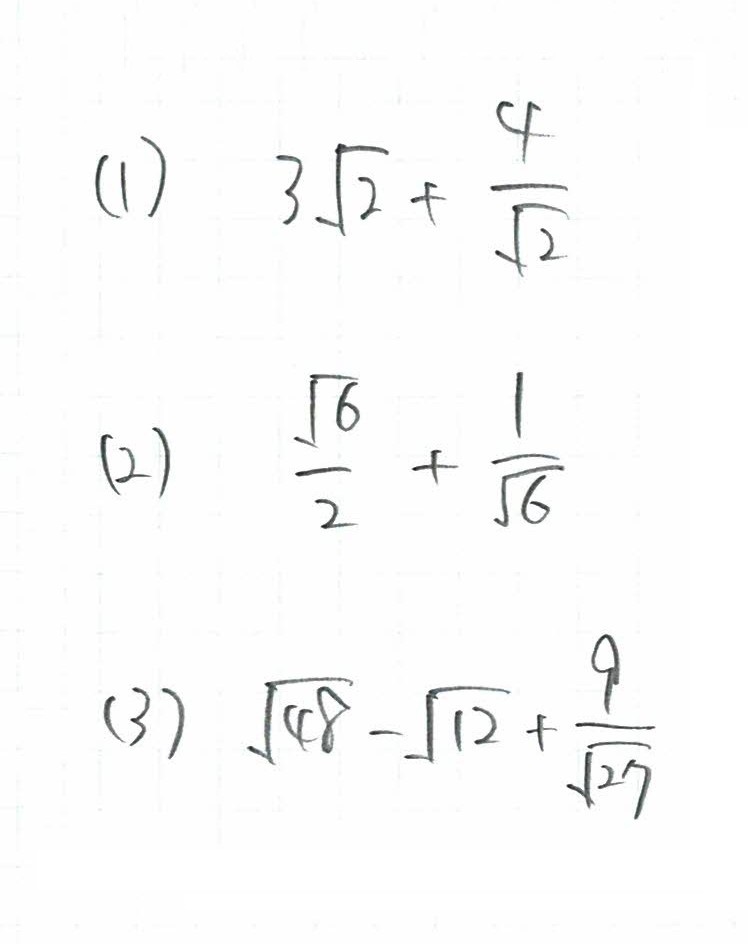 (1) 3√2 + 4/√2
(2) √6/2 + 1/√6
(3) √48 - √12 + 9/√27